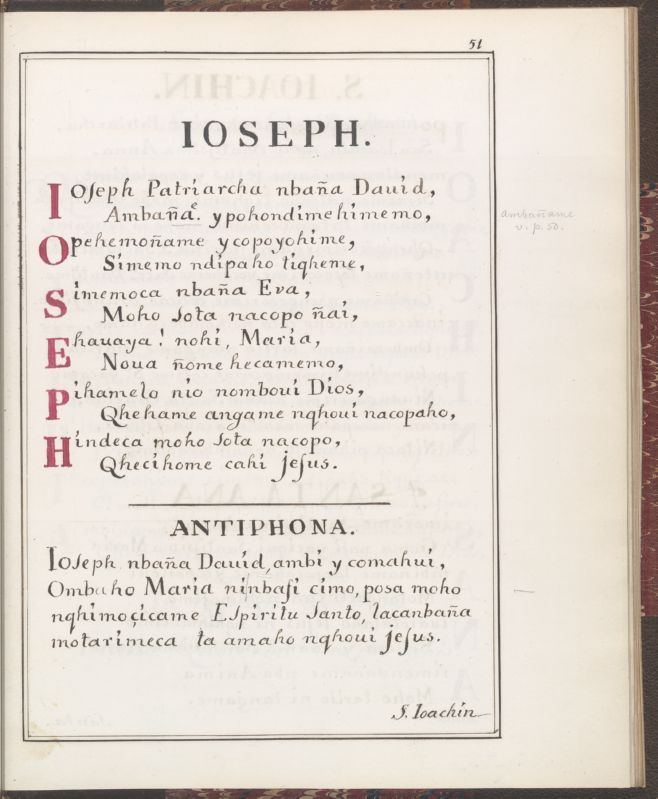 51
IOSEPH.
Ioseph Patriarcha nbaña Dauid,
Ambañaē. ypohondimehimemo,
Opehemoñame ycopoyohime,
Simemo ndipaho tiqheme,
Simemoca nbaña Eva,
Moho sota nacopo ñai,
Ehauaya! nohi, Maria,
Noua ñome hecamemo,
Pihamelo nio nomboui Dios,
Qhehame angame nqhoui nacopaho,
Hindeca moho sota nacopo,
Qhecihome cahi jesus.
ambañame
v. p. 50.
ANTIPHONA.
Ioseph nbaña Dauid, ambi y comahui,
Ombaho Maria ninbasi cimo, posa moho
nqhimoçicame Espiritu santo, lacanbaña
motarimeca ta amaho nqhoui jesus.
S. Ioachin